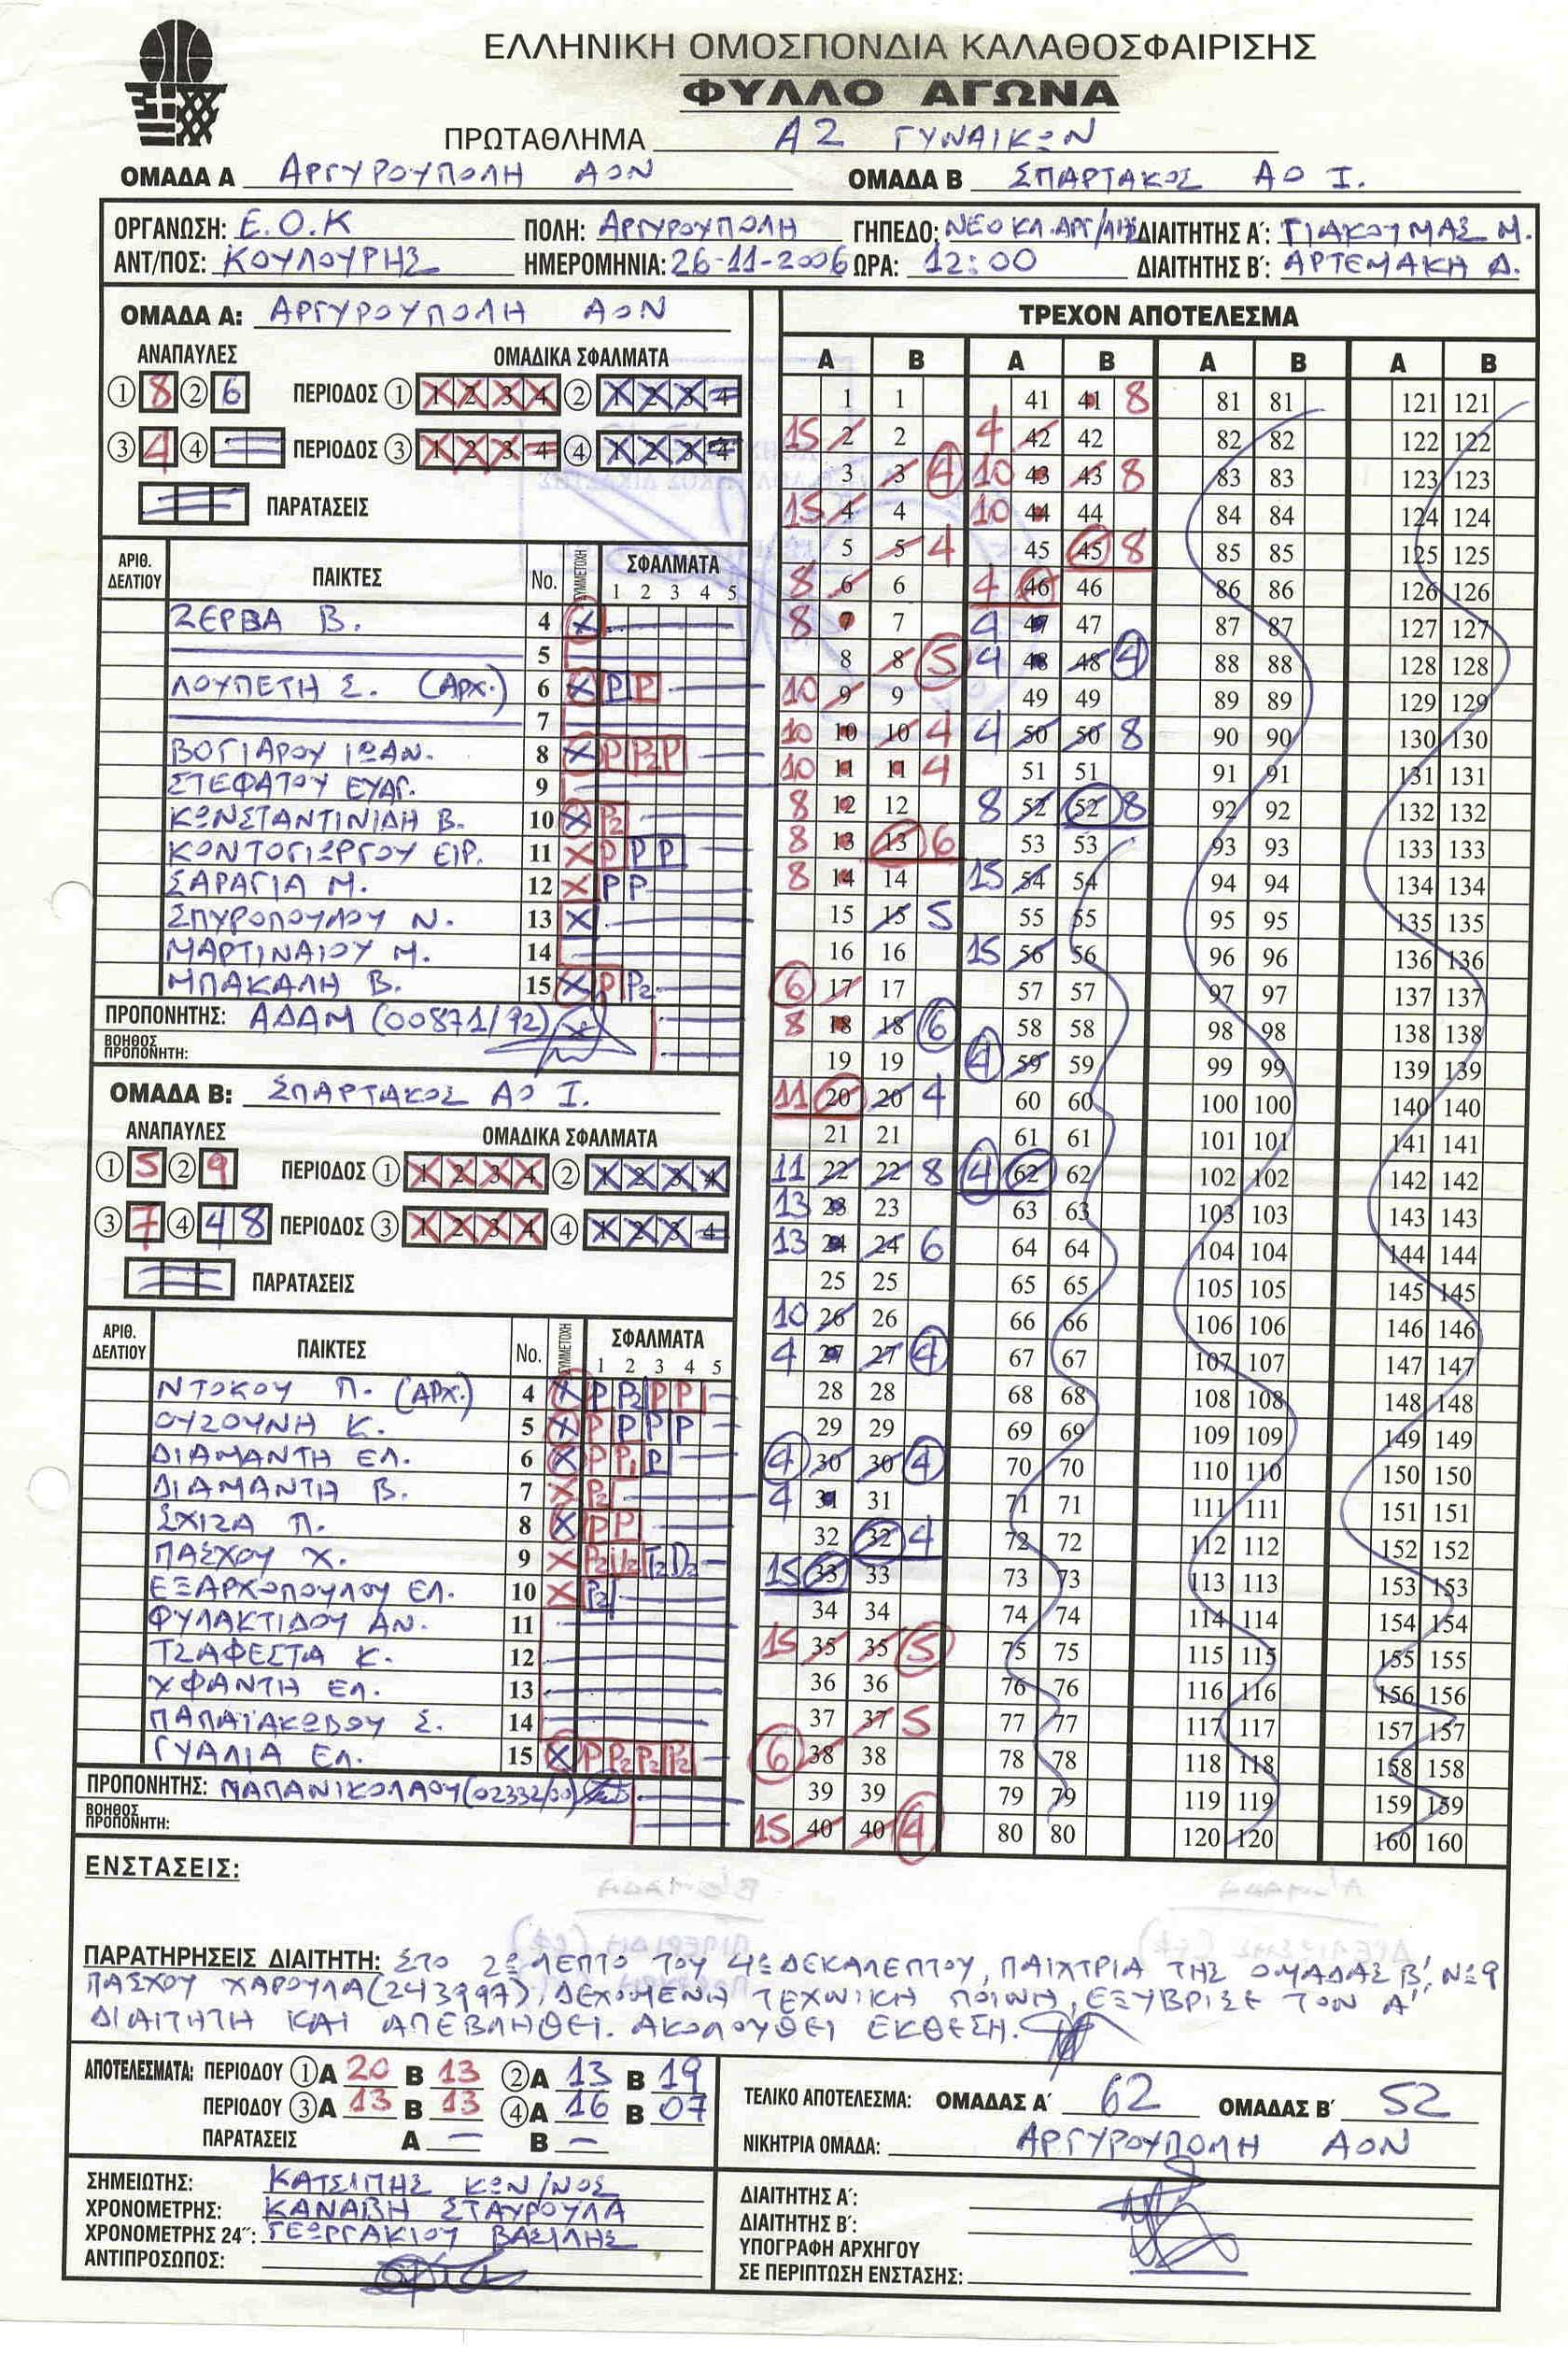 ΕΛΛΗΝΙΚΗ ΟΜΟΣΠΟΝΔΙΑ ΚΑΛΑΘΟΣΦΑΙΡΙΣΗΣ
ΦΥΛΛΟ ΑΓΩΝΑ
ΠΡΩΤΑΘΛΗΜΑ Α2 ΓΥΝΑΙΚΩΝ
ΟΜΑΔΑ Α ΑΡΓΥΡΟΥΠΟΛΗ ΑΟΝ ΟΜΑΔΑ Β ΣΠΑΡΤΑΚΟΣ ΑΟ Ι.
ΟΡΓΑΝΩΣΗ: Ε.Ο.Κ ΠΟΛΗ: ΑΡΓΥΡΟΥΠΟΛΗ ΓΗΠΕΔΟ: ΝΕΟ ΚΛ.ΑΡΓ/ΛΗΣ ΔΙΑΙΤΗΤΗΣ Α΄: ΓΙΑΚΟΥΜΑΣ Μ.
ΑΝΤ/ΠΟΣ: ΚΟΥΛΟΥΡΗΣ ΗΜΕΡΟΜΗΝΙΑ: 26-11-2006 ΩΡΑ: 12:00 ΔΙΑΙΤΗΤΗΣ Β΄: ΑΡΤΕΜΑΚΗ Δ.
ΟΜΑΔΑ Α: ΑΡΓΥΡΟΥΠΟΛΗ ΑΟΝ
ΑΝΑΠΑΥΛΕΣ ΟΜΑΔΙΚΑ ΣΦΑΛΜΑΤΑ
① 8 ② 6 ΠΕΡΙΟΔΟΣ ① 1 2 3 4 ② 1 2 3 4
③ 4 ④ ΠΕΡΙΟΔΟΣ ③ 1 2 3 4 ④ 1 2 3 4
ΠΑΡΑΤΑΣΕΙΣ
ΑΡΙΘ. ΔΕΛΤΙΟΥ ΠΑΙΚΤΕΣ No. ΣΥΜΜΕΤΟΧΗ ΣΦΑΛΜΑΤΑ
1 2 3 4 5
ΖΕΡΒΑ Β. 4 X
5
ΛΟΥΠΕΤΗ Σ. (ΑΡΧ.) 6 X P P
7
ΒΟΓΙΑΡΟΥ ΙΩΑΝ. 8 X P P2 P
ΣΤΕΦΑΤΟΥ ΕΥΑΓ. 9
ΚΩΝΣΤΑΝΤΙΝΙΔΗ Β. 10 X P2
ΚΟΝΤΟΓΙΩΡΓΟΥ ΕΙΡ. 11 X P P P
ΣΑΡΑΓΙΑ Μ. 12 X P P
ΣΠΥΡΟΠΟΥΛΟΥ Ν. 13 X
ΜΑΡΤΙΝΑΙΟΥ Μ. 14
ΜΠΑΚΑΛΗ Β. 15 X P P2
ΠΡΟΠΟΝΗΤΗΣ: ΑΔΑΜ (00871/92)
ΒΟΗΘΟΣ ΠΡΟΠΟΝΗΤΗ:
ΟΜΑΔΑ Β: ΣΠΑΡΤΑΚΟΣ ΑΟ Ι.
ΑΝΑΠΑΥΛΕΣ ΟΜΑΔΙΚΑ ΣΦΑΛΜΑΤΑ
① 5 ② 9 ΠΕΡΙΟΔΟΣ ① 1 2 3 4 ② 1 2 3 4
③ 7 ④ 4 8 ΠΕΡΙΟΔΟΣ ③ 1 2 3 4 ④ 1 2 3 4
ΠΑΡΑΤΑΣΕΙΣ
ΑΡΙΘ. ΔΕΛΤΙΟΥ ΠΑΙΚΤΕΣ No. ΣΥΜΜΕΤΟΧΗ ΣΦΑΛΜΑΤΑ
1 2 3 4 5
ΝΤΟΚΟΥ Π. (ΑΡΧ.) 4 X P P2 P P
ΟΥΖΟΥΝΗ Κ. 5 X P P P P
ΔΙΑΜΑΝΤΗ ΕΛ. 6 X P P1 P
ΔΙΑΜΑΝΤΗ Β. 7 X P2
ΣΧΙΖΑ Π. 8 X P P
ΠΑΣΧΟΥ Χ. 9 X P2 U2 T2 D2
ΕΞΑΡΧΟΠΟΥΛΟΥ ΕΛ. 10 X P2
ΦΥΛΑΚΤΙΔΟΥ ΑΝ. 11
ΤΖΑΦΕΣΤΑ Κ. 12
ΥΦΑΝΤΗ ΕΛ. 13
ΠΑΠΑΪΑΚΩΒΟΥ Σ. 14
ΓΥΑΛΙΑ ΕΛ. 15 X P P2 P2 P2
ΠΡΟΠΟΝΗΤΗΣ: ΠΑΠΑΝΙΚΟΛΑΟΥ (02332/00)
ΒΟΗΘΟΣ ΠΡΟΠΟΝΗΤΗ:
ΤΡΕΧΟΝ ΑΠΟΤΕΛΕΣΜΑ
Α Β Α Β Α Β Α Β
1 1 41 41 8 81 81 121 121
15 2 2 4 42 42 82 82 122 122
3 3 4 10 43 43 8 83 83 123 123
15 4 4 10 44 44 84 84 124 124
5 5 4 45 45 8 85 85 125 125
8 6 6 4 46 46 86 86 126 126
8 7 7 4 47 47 87 87 127 127
8 8 5 4 48 48 4 88 88 128 128
10 9 9 49 49 89 89 129 129
10 10 10 4 4 50 50 8 90 90 130 130
10 11 11 4 51 51 91 91 131 131
8 12 12 8 52 52 8 92 92 132 132
8 13 13 6 53 53 93 93 133 133
8 14 14 15 54 54 94 94 134 134
15 15 5 55 55 95 95 135 135
16 16 15 56 56 96 96 136 136
6 17 17 57 57 97 97 137 137
8 18 18 6 58 58 98 98 138 138
19 19 4 59 59 99 99 139 139
11 20 20 4 60 60 100 100 140 140
21 21 61 61 101 101 141 141
11 22 22 8 4 62 62 102 102 142 142
13 23 23 63 63 103 103 143 143
13 24 24 6 64 64 104 104 144 144
25 25 65 65 105 105 145 145
10 26 26 66 66 106 106 146 146
4 27 27 4 67 67 107 107 147 147
28 28 68 68 108 108 148 148
29 29 69 69 109 109 149 149
4 30 30 4 70 70 110 110 150 150
4 31 31 71 71 111 111 151 151
32 32 4 72 72 112 112 152 152
15 33 33 73 73 113 113 153 153
34 34 74 74 114 114 154 154
15 35 35 5 75 75 115 115 155 155
36 36 76 76 116 116 156 156
37 37 5 77 77 117 117 157 157
6 38 38 78 78 118 118 158 158
39 39 79 79 119 119 159 159
15 40 40 4 80 80 120 120 160 160
ΕΝΣΤΑΣΕΙΣ:
ΠΑΡΑΤΗΡΗΣΕΙΣ ΔΙΑΙΤΗΤΗ: ΣΤΟ 2ο ΛΕΠΤΟ ΤΟΥ 4ου ΔΕΚΑΛΕΠΤΟΥ, ΠΑΙΧΤΡΙΑ ΤΗΣ ΟΜΑΔΑΣ Β', Νο 9
ΠΑΣΧΟΥ ΧΑΡΟΥΛΑ (243997), ΔΕΧΟΜΕΝΗ ΤΕΧΝΙΚΗ ΠΟΙΝΗ, ΕΞΥΒΡΙΣΕ ΤΟΝ Α'
ΔΙΑΙΤΗΤΗ ΚΑΙ ΑΠΕΒΛΗΘΕΙ. ΑΚΟΛΟΥΘΕΙ ΕΚΘΕΣΗ.
ΑΠΟΤΕΛΕΣΜΑΤΑ: ΠΕΡΙΟΔΟΥ ① Α 20 Β 13 ② Α 13 Β 19
ΠΕΡΙΟΔΟΥ ③ Α 13 Β 13 ④ Α 16 Β 07
ΠΑΡΑΤΑΣΕΙΣ Α - Β -
ΤΕΛΙΚΟ ΑΠΟΤΕΛΕΣΜΑ: ΟΜΑΔΑΣ Α΄ 62 ΟΜΑΔΑΣ Β΄ 52
ΝΙΚΗΤΡΙΑ ΟΜΑΔΑ: ΑΡΓΥΡΟΥΠΟΛΗ ΑΟΝ
ΣΗΜΕΙΩΤΗΣ: ΚΑΤΣΙΠΗΣ ΚΩΝ/ΝΟΣ
ΧΡΟΝΟΜΕΤΡΗΣ: ΚΑΝΑΒΗ ΣΤΑΥΡΟΥΛΑ
ΧΡΟΝΟΜΕΤΡΗΣ 24'': ΓΕΩΡΓΑΚΙΟΥ ΒΑΣΙΛΗΣ
ΑΝΤΙΠΡΟΣΩΠΟΣ:
ΔΙΑΙΤΗΤΗΣ Α΄:
ΔΙΑΙΤΗΤΗΣ Β΄:
ΥΠΟΓΡΑΦΗ ΑΡΧΗΓΟΥ
ΣΕ ΠΕΡΙΠΤΩΣΗ ΕΝΣΤΑΣΗΣ: